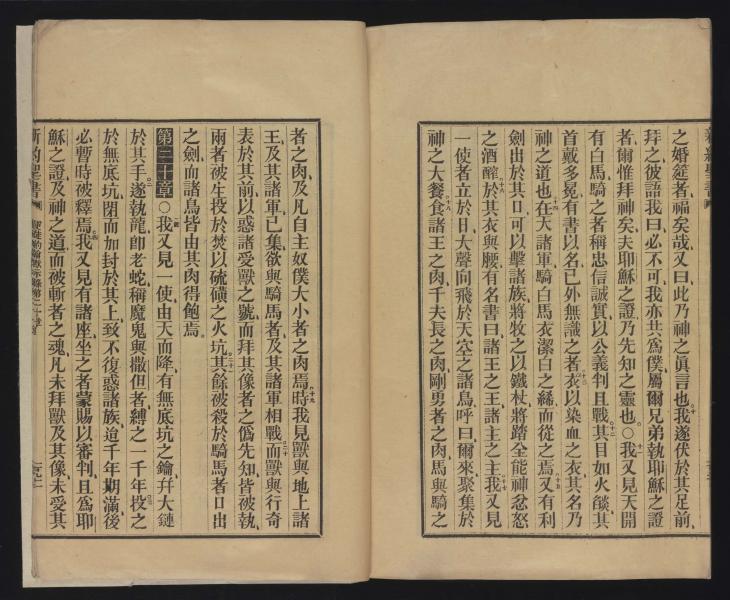 之婚筵者福矣哉又曰此乃神之眞言也我遂伏於其足前
拜之彼語我曰必不可我亦共爲僕屬爾兄弟執耶穌之證
者爾惟拜神矣夫耶穌之證乃先知之靈也○我又見天開
有白馬騎之者稱忠信誠實以公義判且戰其目如火燄其
首戴多冕有書以名己外無識之者衣以染血之衣其名乃
神之道也在天諸軍騎白馬衣潔白之絺而從之焉又有利
劍出於其口可以擊諸族將牧之以鐵杖將踏全能神忿怒
之酒醡於其衣與腰有名書曰諸王之王諸主之主我又見
一使者立於日大聲向飛於天空之諸鳥呼曰爾來聚集於
神之大餐食諸王之肉千夫長之肉剛勇者之肉馬與騎之
者之肉及凡自主奴僕大小者之肉焉時我見獸與地上諸
王及其諸軍已集欲與騎馬者及其諸軍相戰而獸與行奇
表於其前以惑諸受獸之號而拜其像者之僞先知皆被執
兩者被生投於焚以硫磺之火坑其餘被殺於騎馬者口出
之劍而諸鳥皆由其肉得飽焉
第二十章○我又見一使由天而降有無底坑之鑰幷大鏈
於其手遂執龍卽老蛇稱魔鬼與撒但者縛之一千年投之
於無底坑閉而加封於其上致不復惑諸族迨千年期滿後
必暫時被釋焉我又見有諸座坐之者蒙賜以審判且爲耶
穌之證及神之道而被斬者之魂凡未拜獸及其像未受其
新約聖書